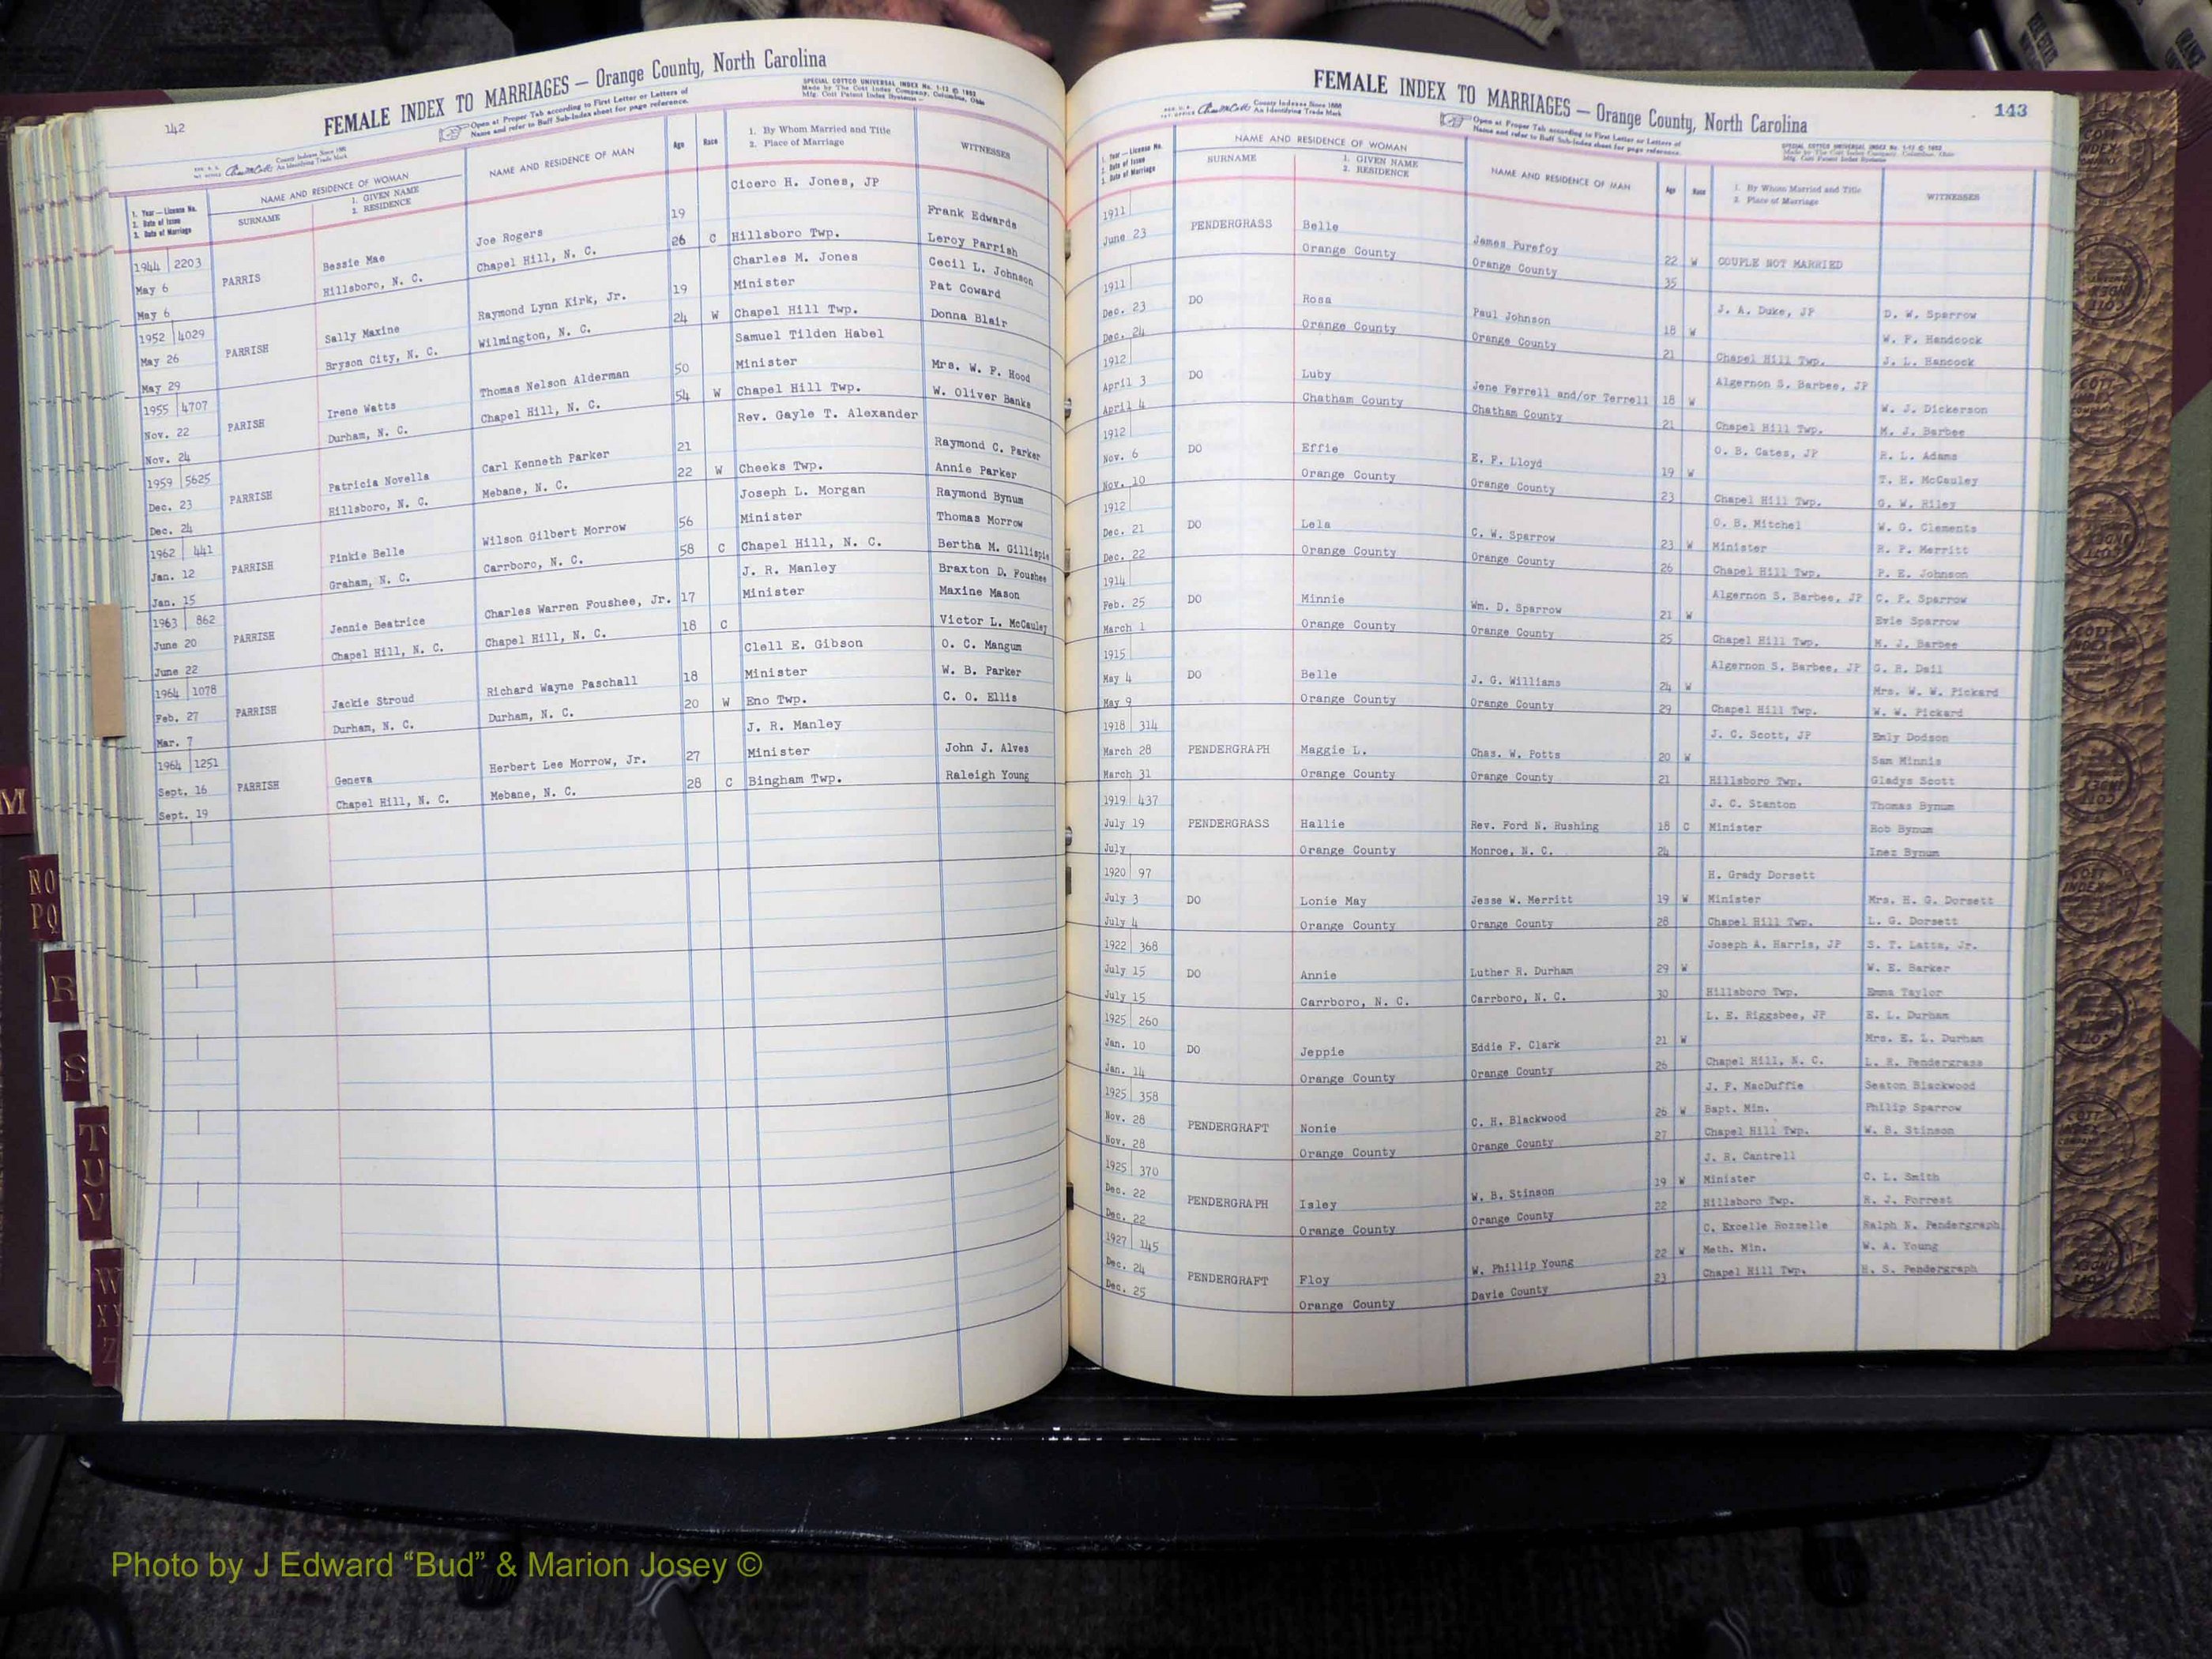 142
FEMALE INDEX TO MARRIAGES — Orange County, North Carolina
Open at Proper Tab according to First Letter or Letters of
Name and refer to Buff Sub-Index sheet for page reference.
SPECIAL COTTCO UNIVERSAL INDEX No. 1-12 © 1952
Made by The Cott Index Company, Columbus, Ohio
1. Year — License No.
2. Date of Issue
3. Date of Marriage
NAME AND RESIDENCE OF WOMAN
SURNAME
1. GIVEN NAME
2. RESIDENCE
NAME AND RESIDENCE OF MAN
Age
Race
1. By Whom Married and Title
2. Place of Marriage
WITNESSES
1944 2203 Cicero H. Jones, JP
May 6 PARRIS Bessie Mae Joe Rogers 19 Frank Edwards
May 6 Hillsboro, N. C. Chapel Hill, N. C. 26 C Hillsboro Twp. Leroy Parrish
1952 4029 Charles M. Jones Cecil L. Johnson
May 26 PARRISH Sally Maxine Raymond Lynn Kirk, Jr. 19 Minister Pat Coward
May 29 Bryson City, N. C. Wilmington, N. C. 24 W Chapel Hill Twp. Donna Blair
1955 4707 Samuel Tilden Habel
Nov. 22 PARISH Irene Watts Thomas Nelson Alderman 50 Minister Mrs. W. P. Hood
Nov. 24 Durham, N. C. Chapel Hill, N. C. 54 W Chapel Hill Twp. W. Oliver Banks
1959 5625 Rev. Gayle T. Alexander
Dec. 23 PARRISH Patricia Novella Carl Kenneth Parker 21 Raymond C. Parker
Dec. 24 Hillsboro, N. C. Mebane, N. C. 22 W Cheeks Twp. Annie Parker
1962 441 Joseph L. Morgan Raymond Bynum
Jan. 12 PARRISH Pinkie Belle Wilson Gilbert Morrow 56 Minister Thomas Morrow
Jan. 15 Graham, N. C. Carrboro, N. C. 58 C Chapel Hill, N. C. Bertha M. Gillispie
1963 862 J. R. Manley Braxton D. Foushee
June 20 PARRISH Jennie Beatrice Charles Warren Foushee, Jr. 17 Minister Maxine Mason
June 22 Chapel Hill, N. C. Chapel Hill, N. C. 18 C Victor L. McCauley
1964 1078 Clell E. Gibson O. C. Mangum
Feb. 27 PARRISH Jackie Stroud Richard Wayne Paschall 18 Minister W. B. Parker
Mar. 7 Durham, N. C. Durham, N. C. 20 W Eno Twp. C. O. Ellis
1964 1251 J. R. Manley
Sept. 16 PARRISH Geneva Herbert Lee Morrow, Jr. 27 Minister John J. Alves
Sept. 19 Chapel Hill, N. C. Mebane, N. C. 28 C Bingham Twp. Raleigh Young
143
FEMALE INDEX TO MARRIAGES — Orange County, North Carolina
County Indexes Since 1888
An Identifying Trade Mark
Open at Proper Tab according to First Letter or Letters of
Name and refer to Buff Sub-Index sheet for page reference.
SPECIAL COTTCO UNIVERSAL INDEX No. 1-12 © 1952
1. Year — License No.
2. Date of Issue
3. Date of Marriage
NAME AND RESIDENCE OF WOMAN
SURNAME
1. GIVEN NAME
2. RESIDENCE
NAME AND RESIDENCE OF MAN
Age
Race
1. By Whom Married and Title
2. Place of Marriage
WITNESSES
1911
June 23 PENDERGRASS Belle James Purefoy 22 W COUPLE NOT MARRIED
Orange County Orange County 35
1911 J. A. Duke, JP D. W. Sparrow
Dec. 23 DO Rosa Paul Johnson 18 W W. F. Handcock
Dec. 24 Orange County Orange County 21 Chapel Hill Twp. J. L. Hancock
1912 Algernon S. Barbee, JP
April 3 DO Luby Jene Ferrell and/or Terrell 18 W W. J. Dickerson
April 4 Chatham County Chatham County 21 Chapel Hill Twp. M. J. Barbee
1912 O. B. Cates, JP R. L. Adams
Nov. 6 DO Effie E. F. Lloyd 19 W T. H. McCauley
Nov. 10 Orange County Orange County 23 Chapel Hill Twp. G. W. Riley
1912 O. B. Mitchel W. G. Clements
Dec. 21 DO Lela C. W. Sparrow 23 W Minister R. P. Merritt
Dec. 22 Orange County Orange County 26 Chapel Hill Twp. P. E. Johnson
1914 Algernon S. Barbee, JP C. P. Sparrow
Feb. 25 DO Minnie Wm. D. Sparrow 21 W Evie Sparrow
March 1 Orange County Orange County 25 Chapel Hill Twp. M. J. Barbee
1915 Algernon S. Barbee, JP G. R. Dail
May 4 DO Belle J. G. Williams 24 W Mrs. W. W. Pickard
May 9 Orange County Orange County 29 Chapel Hill Twp. W. W. Pickard
1918 314 J. C. Scott, JP Emly Dodson
March 28 PENDERGRAPH Maggie L. Chas. W. Potts 20 W Sam Minnis
March 31 Orange County Orange County 21 Hillsboro Twp. Gladys Scott
1919 437 J. C. Stanton Thomas Bynum
July 19 PENDERGRASS Hallie Rev. Ford N. Rushing 18 C Minister Rob Bynum
July Orange County Monroe, N. C. 24 Inez Bynum
1920 97 H. Grady Dorsett
July 3 DO Lonie May Jesse W. Merritt 19 W Minister Mrs. H. G. Dorsett
July 4 Orange County Orange County 28 Chapel Hill Twp. L. G. Dorsett
1922 368 Joseph A. Harris, JP S. T. Latta, Jr.
July 15 DO Annie Luther R. Durham 29 W W. E. Barker
July 15 Carrboro, N. C. Carrboro, N. C. 30 Hillsboro Twp. Emma Taylor
1925 260 L. E. Riggsbee, JP E. L. Durham
Jan. 10 DO Jeppie Eddie F. Clark 21 W Mrs. E. L. Durham
Jan. 14 Orange County Orange County 26 Chapel Hill, N. C. L. R. Pendergrass
1925 358 J. F. MacDuffie Seaton Blackwood
Nov. 28 PENDERGRAFT Nonie C. H. Blackwood 26 W Bapt. Min. Philip Sparrow
Nov. 28 Orange County Orange County 27 Chapel Hill Twp. W. B. Stinson
1925 370 J. R. Cantrell
Dec. 22 PENDERGRAPH Isley W. B. Stinson 19 W Minister C. L. Smith
Dec. 22 Orange County Orange County 22 Hillsboro Twp. R. J. Forrest
1927 145 C. Excelle Rozzelle Ralph N. Pendergraph
Dec. 24 PENDERGRAFT Floy W. Phillip Young 22 W Meth. Min. W. A. Young
Dec. 25 Orange County Davie County 23 Chapel Hill Twp. H. S. Pendergraph
M
NO
PQ
R
S
T
U
V
W
XY
Z
Photo by J Edward “Bud” & Marion Josey ©